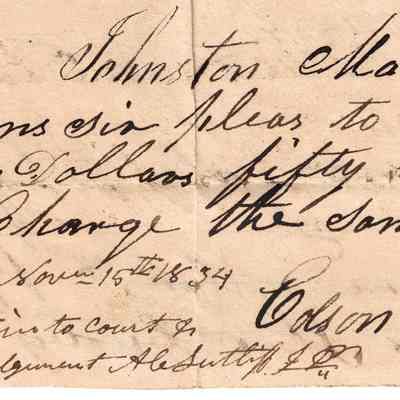 Johnston Ma
ns sir pleas to
Dollars fifty
Change the sam
Novem 15th 1834
Edson
to court &
dgement A le Sutliff J P